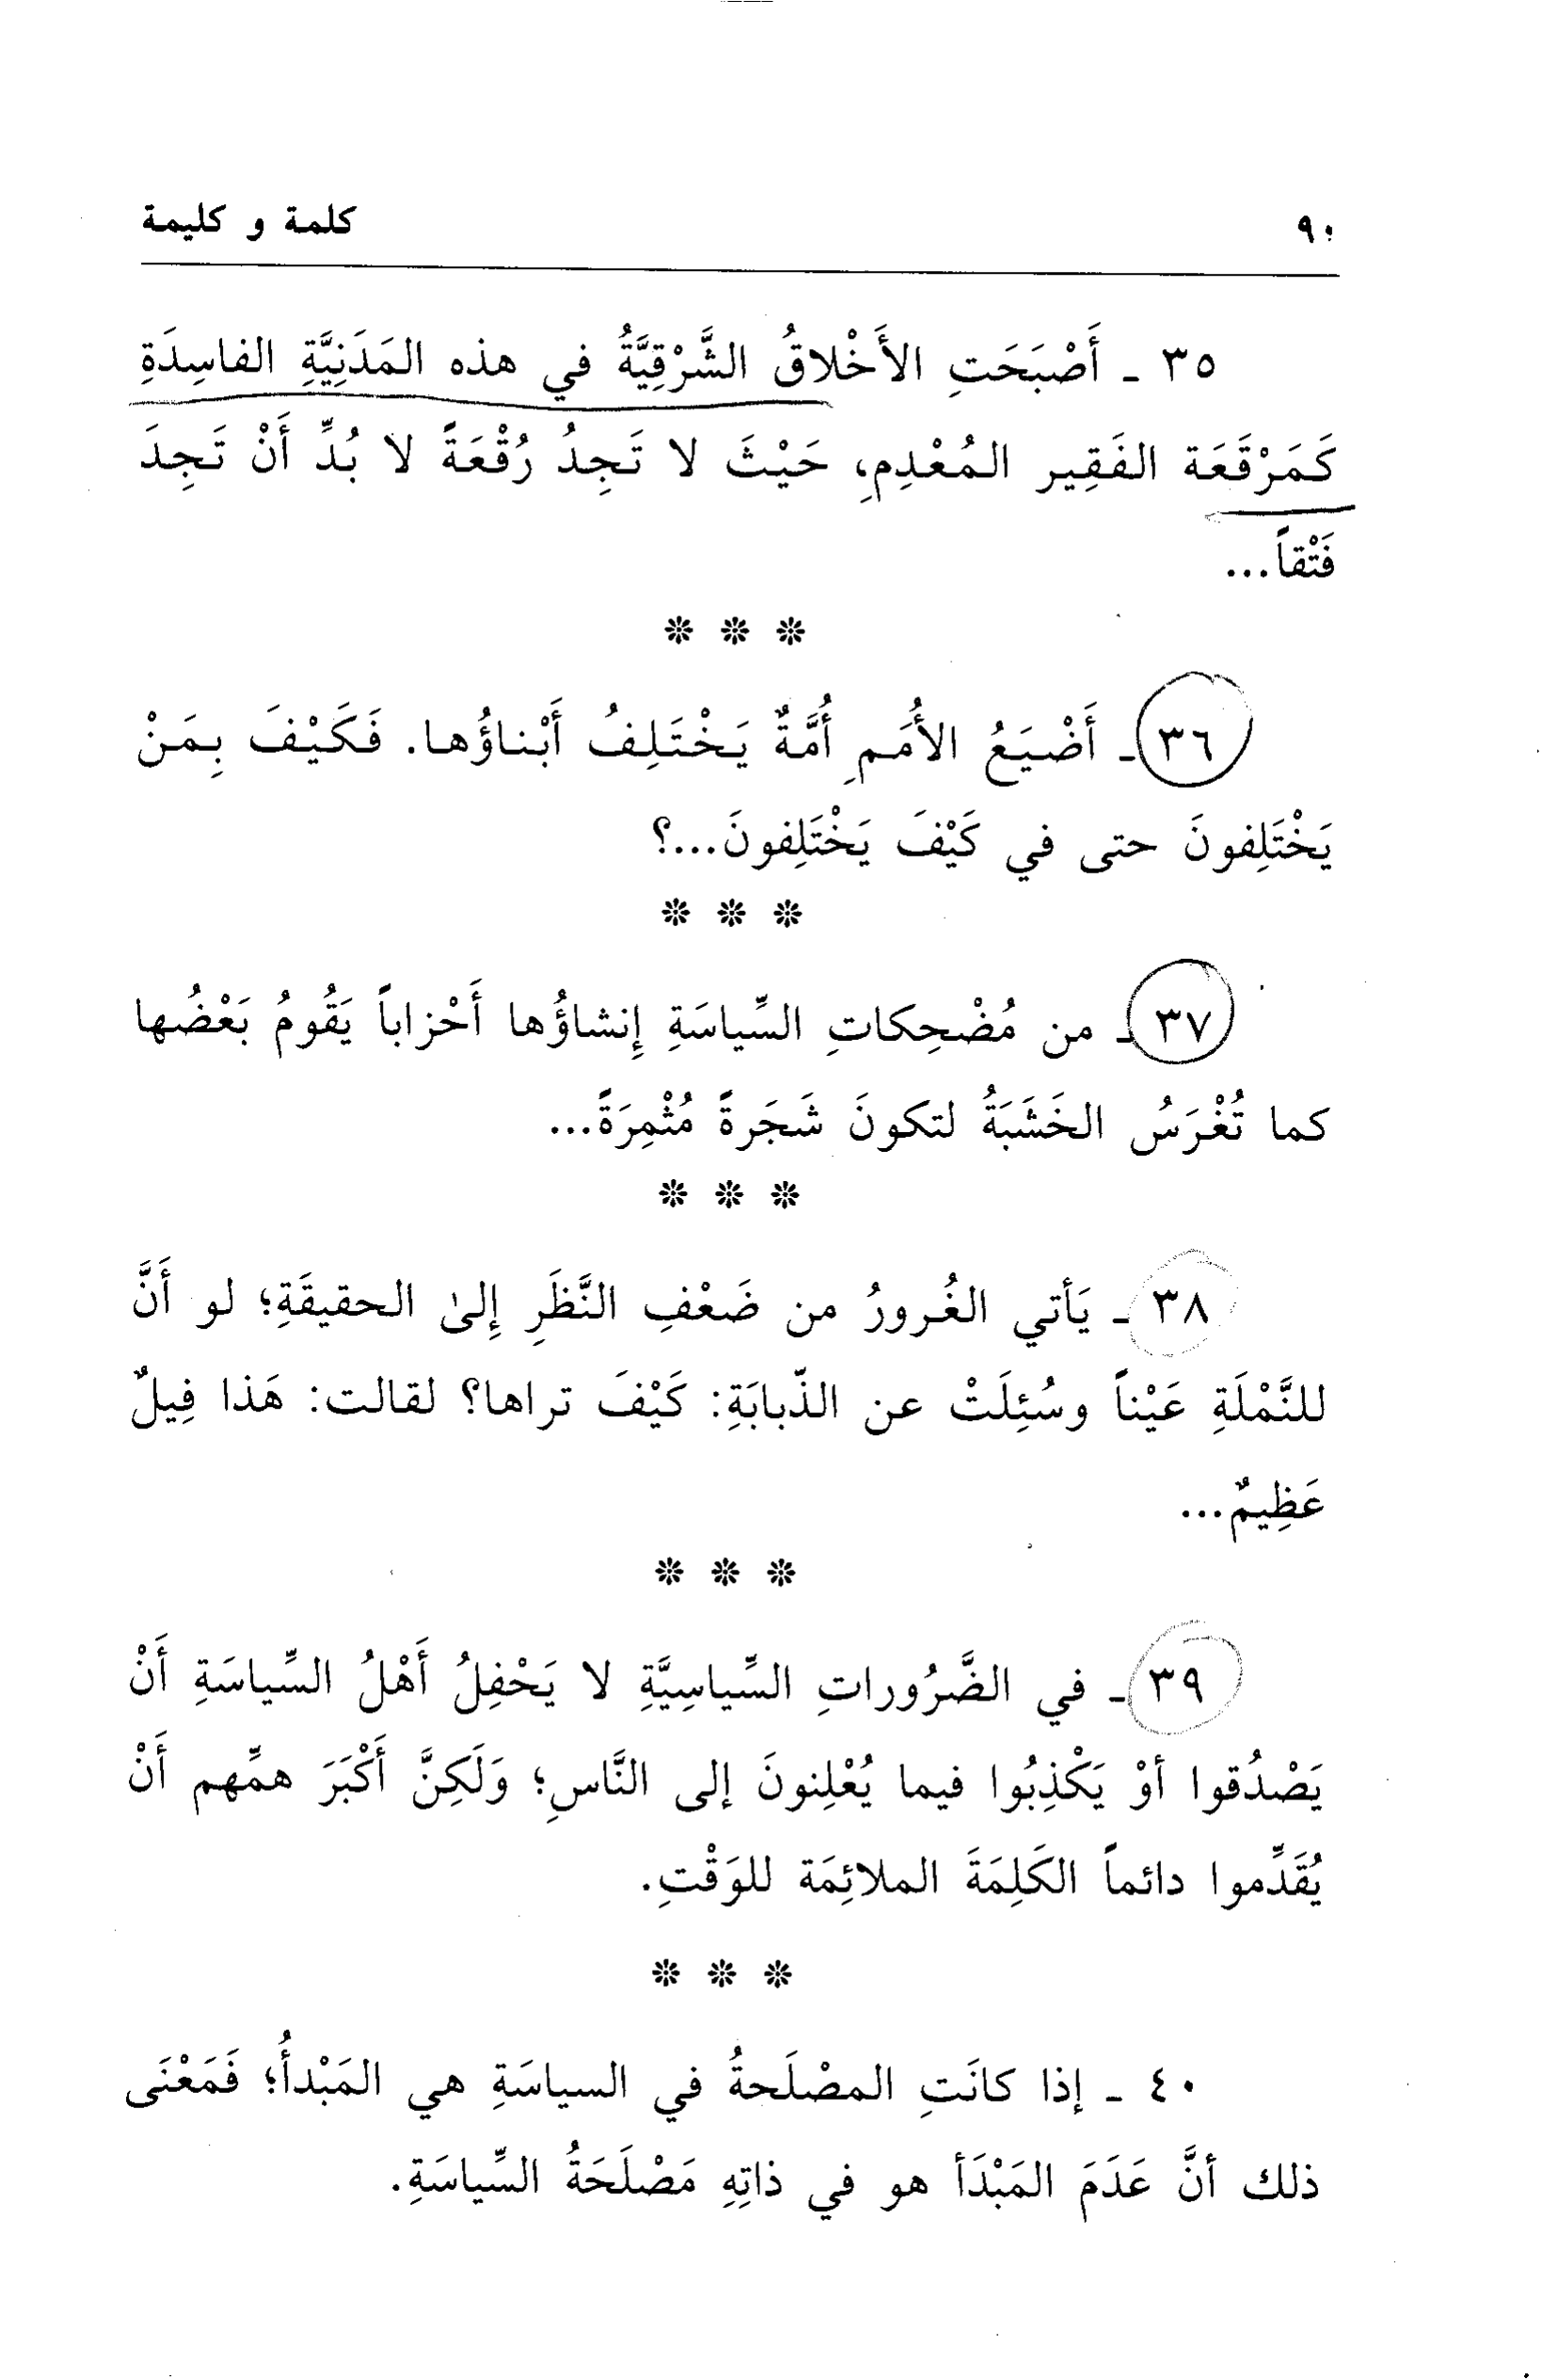 ٩٠ كلمة و كليمة
٣٥ ـ أَصْبَحَتِ الأَخْلاقُ الشَّرْقِيَّةُ في هذه المَدَنِيَّةِ الفاسِدَةِ
كَمَرْقَعَة الفَقِير المُعْدِمِ، حَيْثَ لا تَجِدُ رُقْعَةً لا بُدِّ أَنْ تَجِدَ
فَتْقاً...
❊ ❊ ❊
٣٦ ـ أَضْيَعُ الأُمَمِ أُمَّةٌ يَخْتَلِفُ أَبْناؤُها. فَكَيْفَ بِمَنْ
يَخْتَلِفونَ حتى في كَيْفَ يَخْتَلِفونَ...؟
❊ ❊ ❊
٣٧ ـ من مُضْحِكاتِ السِّياسَةِ إِنشاؤُها أَحْزاباً يَقُومُ بَعْضُها
كما تُغْرَسُ الخَشَبَةُ لتكونَ شَجَرةً مُثْمِرَةً...
❊ ❊ ❊
٣٨ ـ يَأتي الغُرورُ من ضَعْفِ النَّظَرِ إِلىٰ الحقيقَةِ؛ لو أَنَّ
للنَّمْلَةِ عَيْناً وسُئِلَتْ عن الذّبابَةِ: كَيْفَ تراها؟ لقالت: هَذا فِيلٌ
عَظِيمٌ...
❊ ❊ ❊
٣٩ ـ في الضَّرُوراتِ السِّياسِيَّةِ لا يَحْفِلُ أَهْلُ السِّياسَةِ أَنْ
يَصْدُقوا أوْ يَكْذِبُوا فيما يُعْلِنونَ إلى النَّاسِ؛ وَلَكِنَّ أَكْبَرَ همِّهم أَنْ
يُقَدِّموا دائماً الكَلِمَةَ الملائِمَة للوَقْتِ.
❊ ❊ ❊
٤٠ ـ إذا كانَتِ المصْلَحةُ في السياسَةِ هي المَبْدأُ؛ فَمَعْنَى
ذلك أنَّ عَدَمَ المَبْدَأ هو في ذاتِهِ مَصْلَحَةُ السِّياسَةِ.